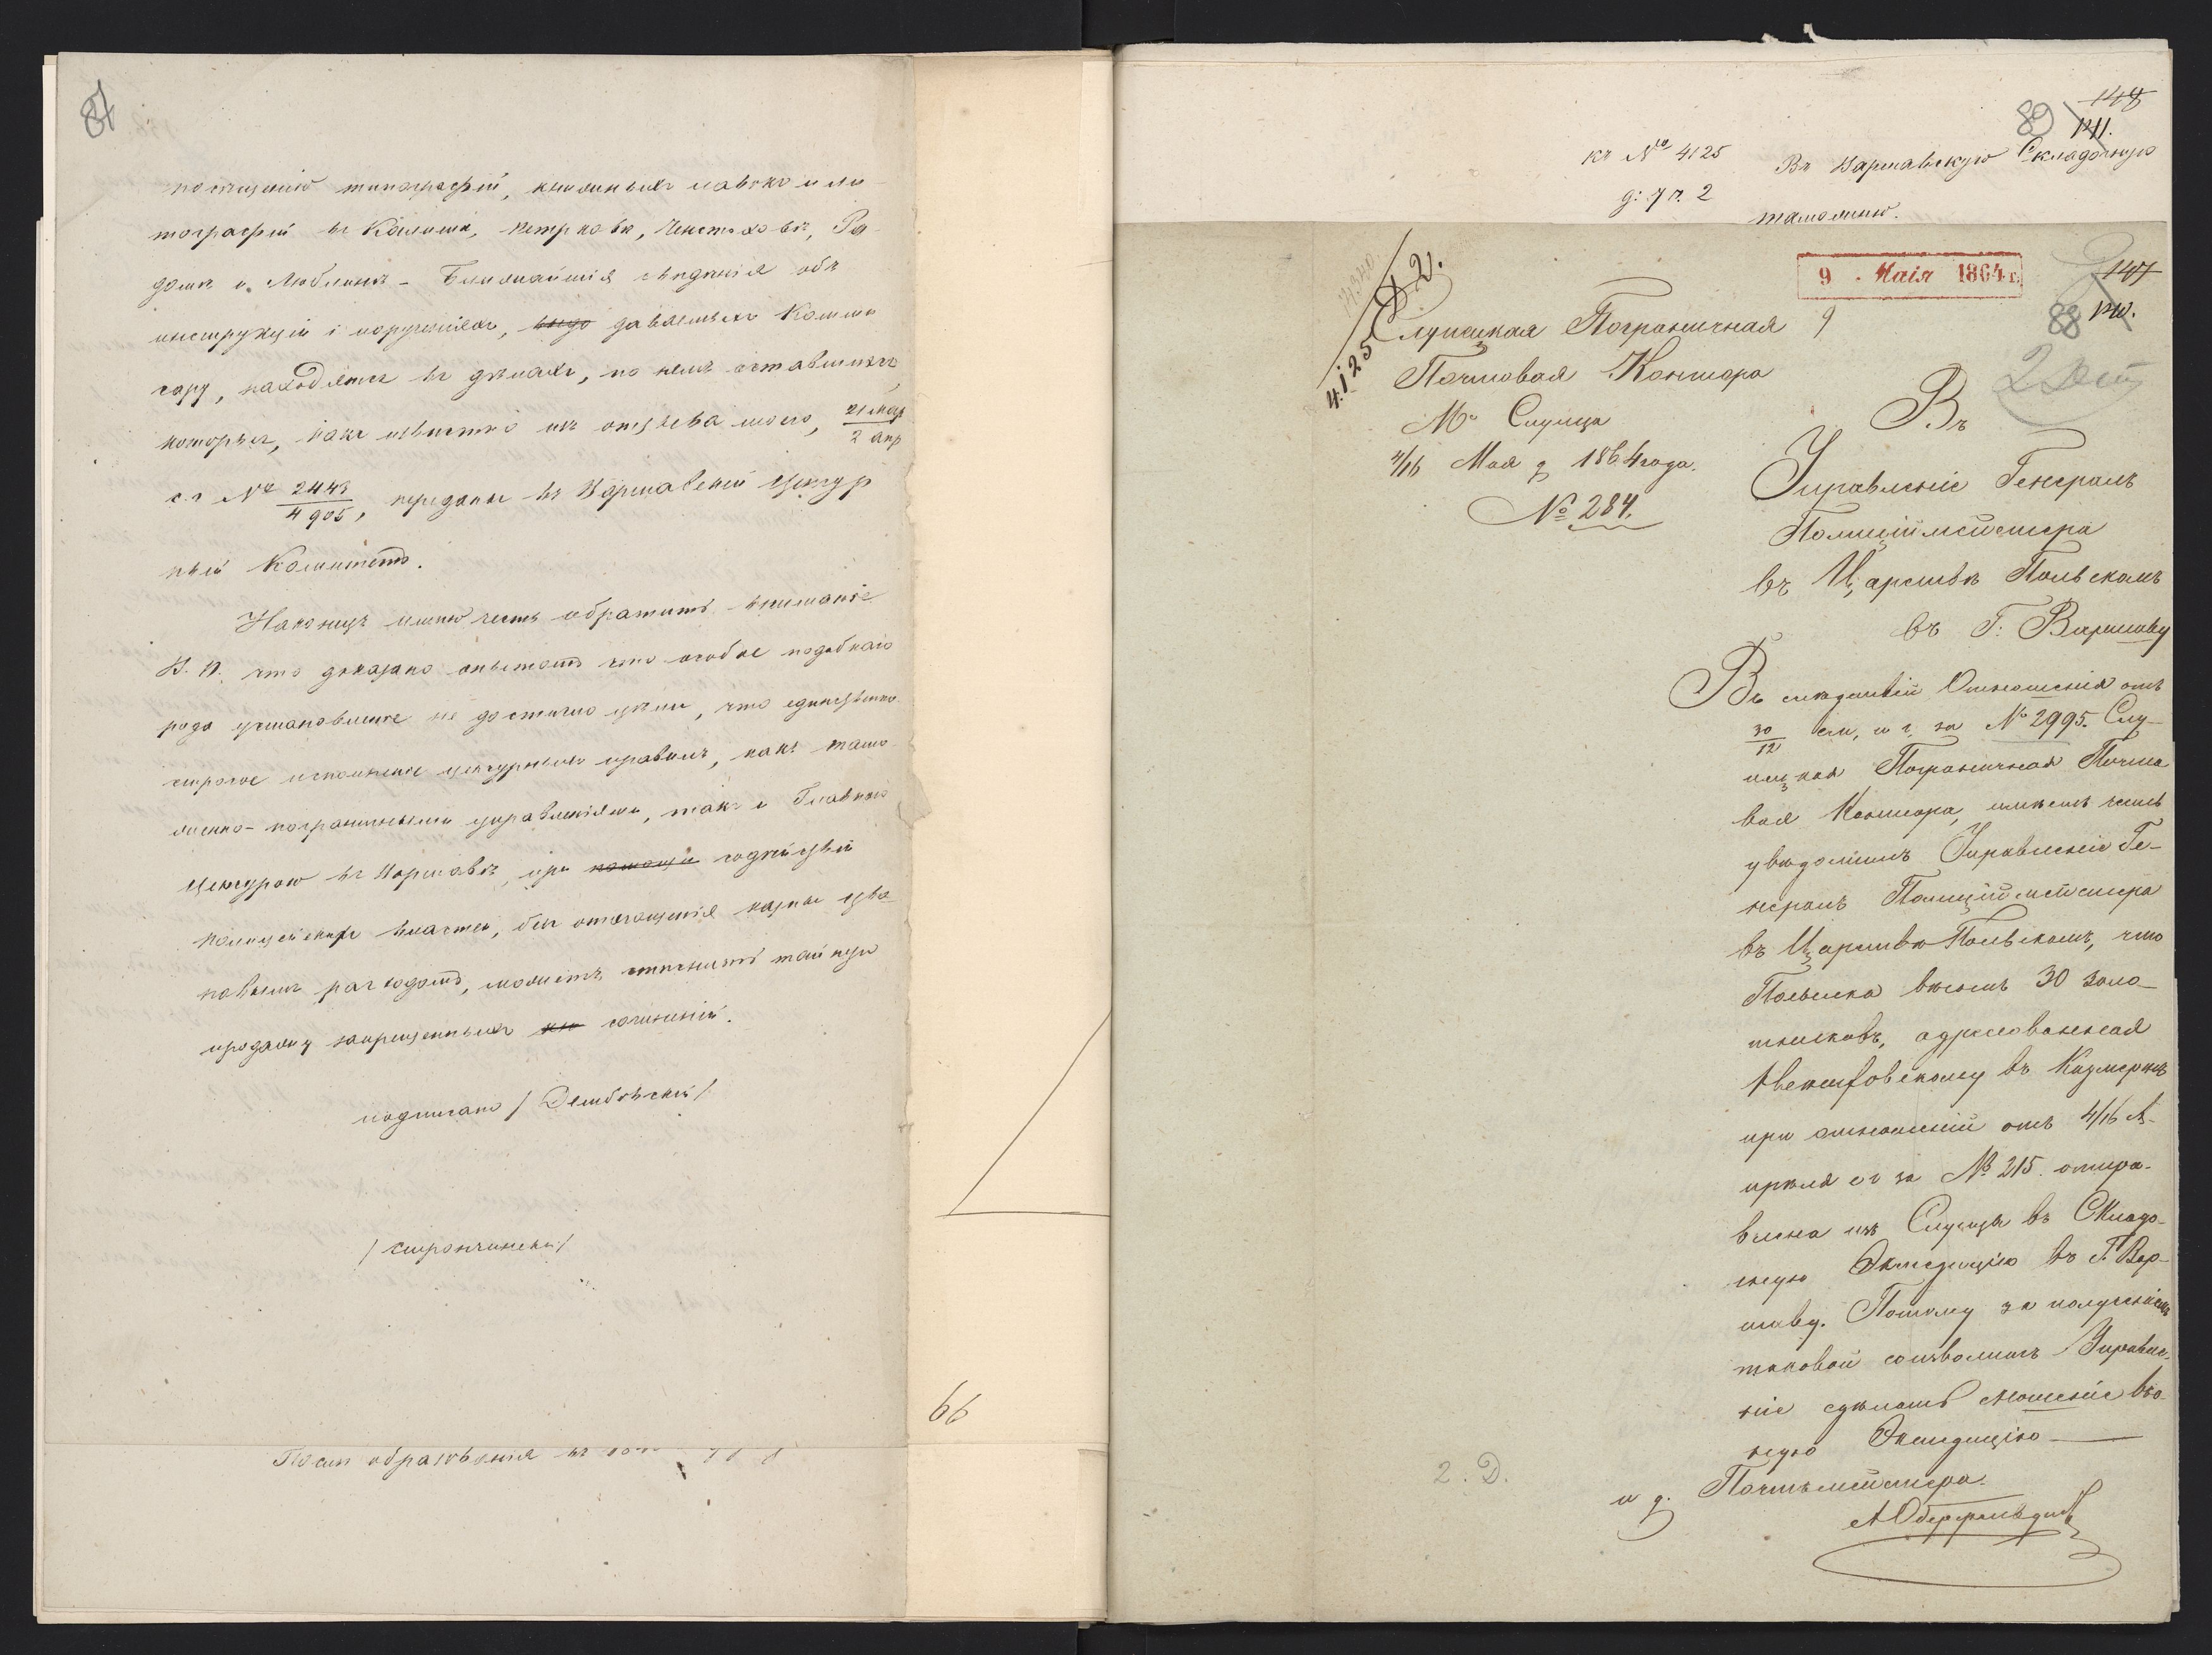 87
посѣщенію типографій, книжныхъ лавокъ и ли
тографій въ Калишѣ, Петрковѣ, Ченстоховѣ, Ра
домѣ и Люблинѣ - Ближайшія свѣдѣнія объ
инструкціи и порученіяхъ, даваемыхъ Комми
сару, находятся въ дѣлахъ, по немъ оставшихся,
которыя, какъ извѣстно изъ отзыва моего, 21 Мар / 2 Апр
с.г № 2443 / 4905, переданы въ Варшавскій Цензур
ный Комитетъ.
Наконецъ имѣю честь обратить вниманіе
В. П. что доказано опытомъ что особое подобнаго
рода установленіе не достигло цѣли, что единственно
строгое исполненіе цензурныхъ правилъ, какъ тамо
женно-пограничными управленіями, такъ и Главною
Цензурою въ Варшавѣ, при помощи содѣйствіи
полицейскихъ властей, безъ отягощенія казны
новымъ расходомъ, можетъ стѣснить тайную
продажу запрещенныхъ сочиненій.
подписано / Дембовскій /
/ Стрончинскій /
66
148
89 141.
къ № 4125
д: 7 ч. 2
Въ Варшавскую Складочную
таможню.
9 Маія 1864 г.
147
88 140.
4125
Д 2.
Слупецкая Пограничная
Почтовая Контора
М. Слупца
4/16 Мая д 1864 года.
№ 284.
Въ
Управленіе Генералъ
Полиційместера
въ Царствѣ Польскомъ
въ Г: Варшаву
Въ слѣдствіи Отношенія отъ
30/12 см, и г. за № 2995. Слу-
пецкая Пограничная Почто
вая Контора, имѣетъ честь
увѣдомить Управленіе Ге-
нералъ Полиційместера
въ Царствѣ Польскомъ, что
Посылка вѣсомъ 30 золо-
тниковъ, адресованная
въ Казмержъ
при отношеніи отъ 4/16 А-
прѣля с г за № 215. отпра-
влена изъ Слупцы въ Складо-
чную Экспедицію въ Г. Вар-
шаву. Потому за полученіемъ
таковой соизволитъ Управле-
ніе сдѣлать сношеніе въ о-
ную Экспедицію
и д. Почтмейстера.
2. Д.